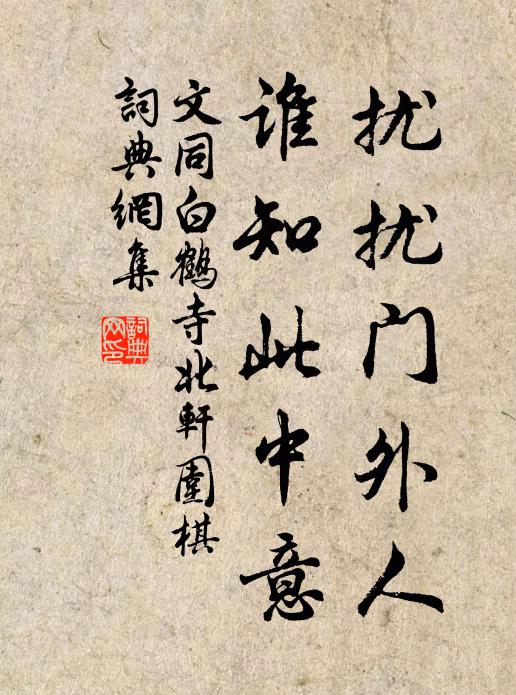 扰扰门外人
谁知此中意
文同白鶴寺北軒圍棋
詞典網集
詞典网印